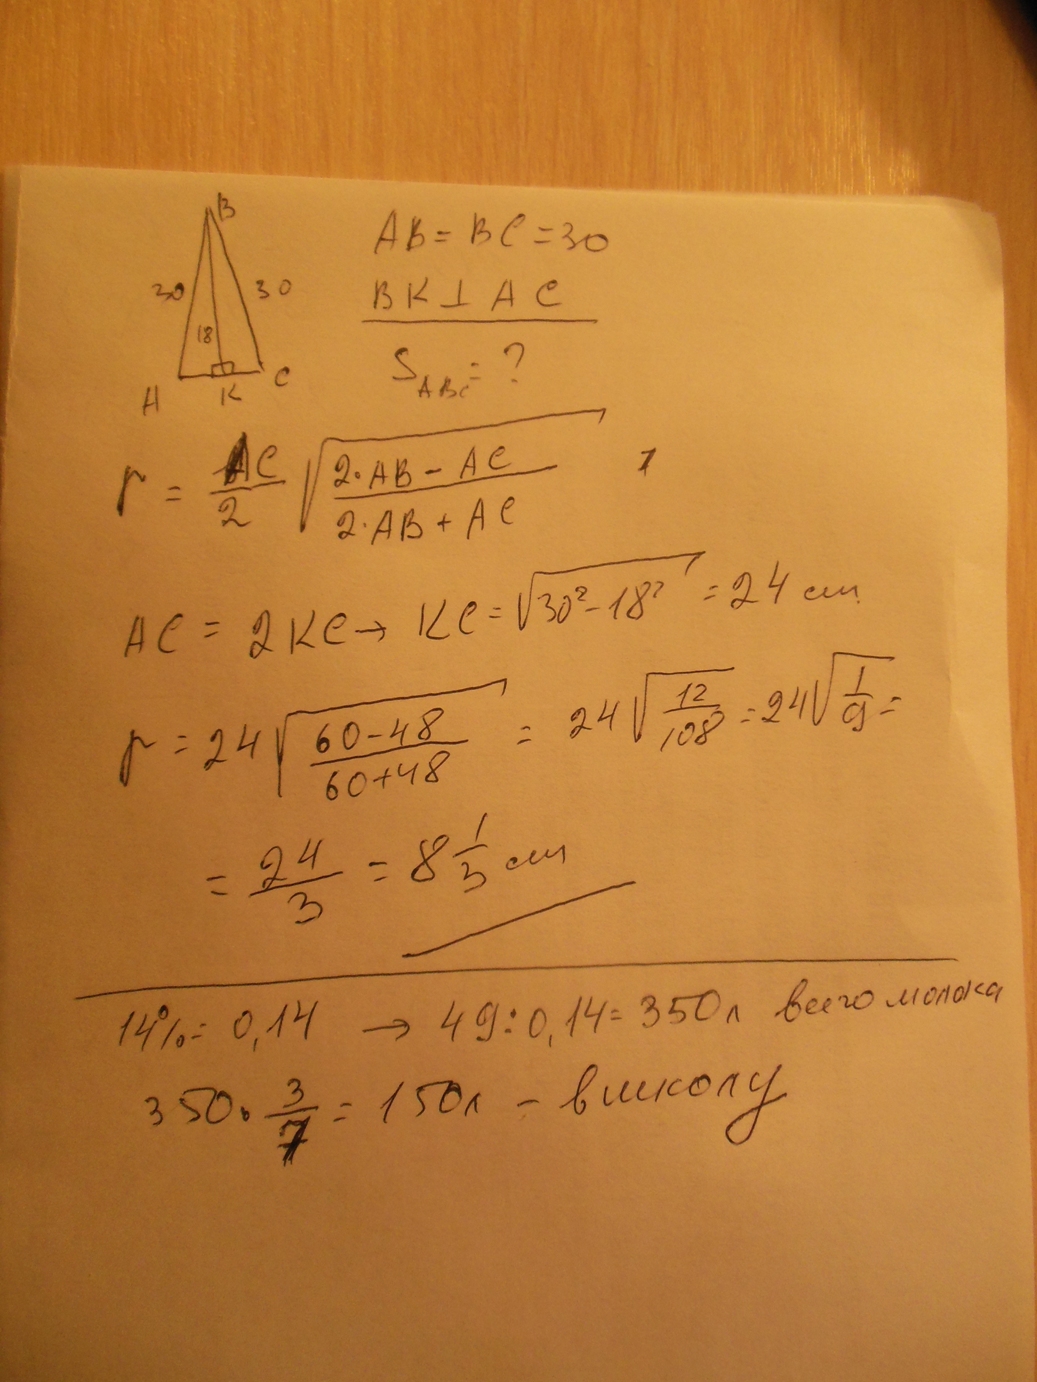 B
30 30
18
A K C
AB = BC = 30
BK ⊥ AC
S_ABC = ?
r = AC/2 √((2·AB − AC)/(2·AB + AC))
AC = 2KC → KC = √(30² − 18²) = 24 см
r = 24 √((60 − 48)/(60 + 48)) = 24 √(12/108) = 24 √(1/9) =
= 24/3 = 8 1/3 см
14% = 0,14 → 49 : 0,14 = 350 л всего молока
350 · 3/7 = 150 л – в школу